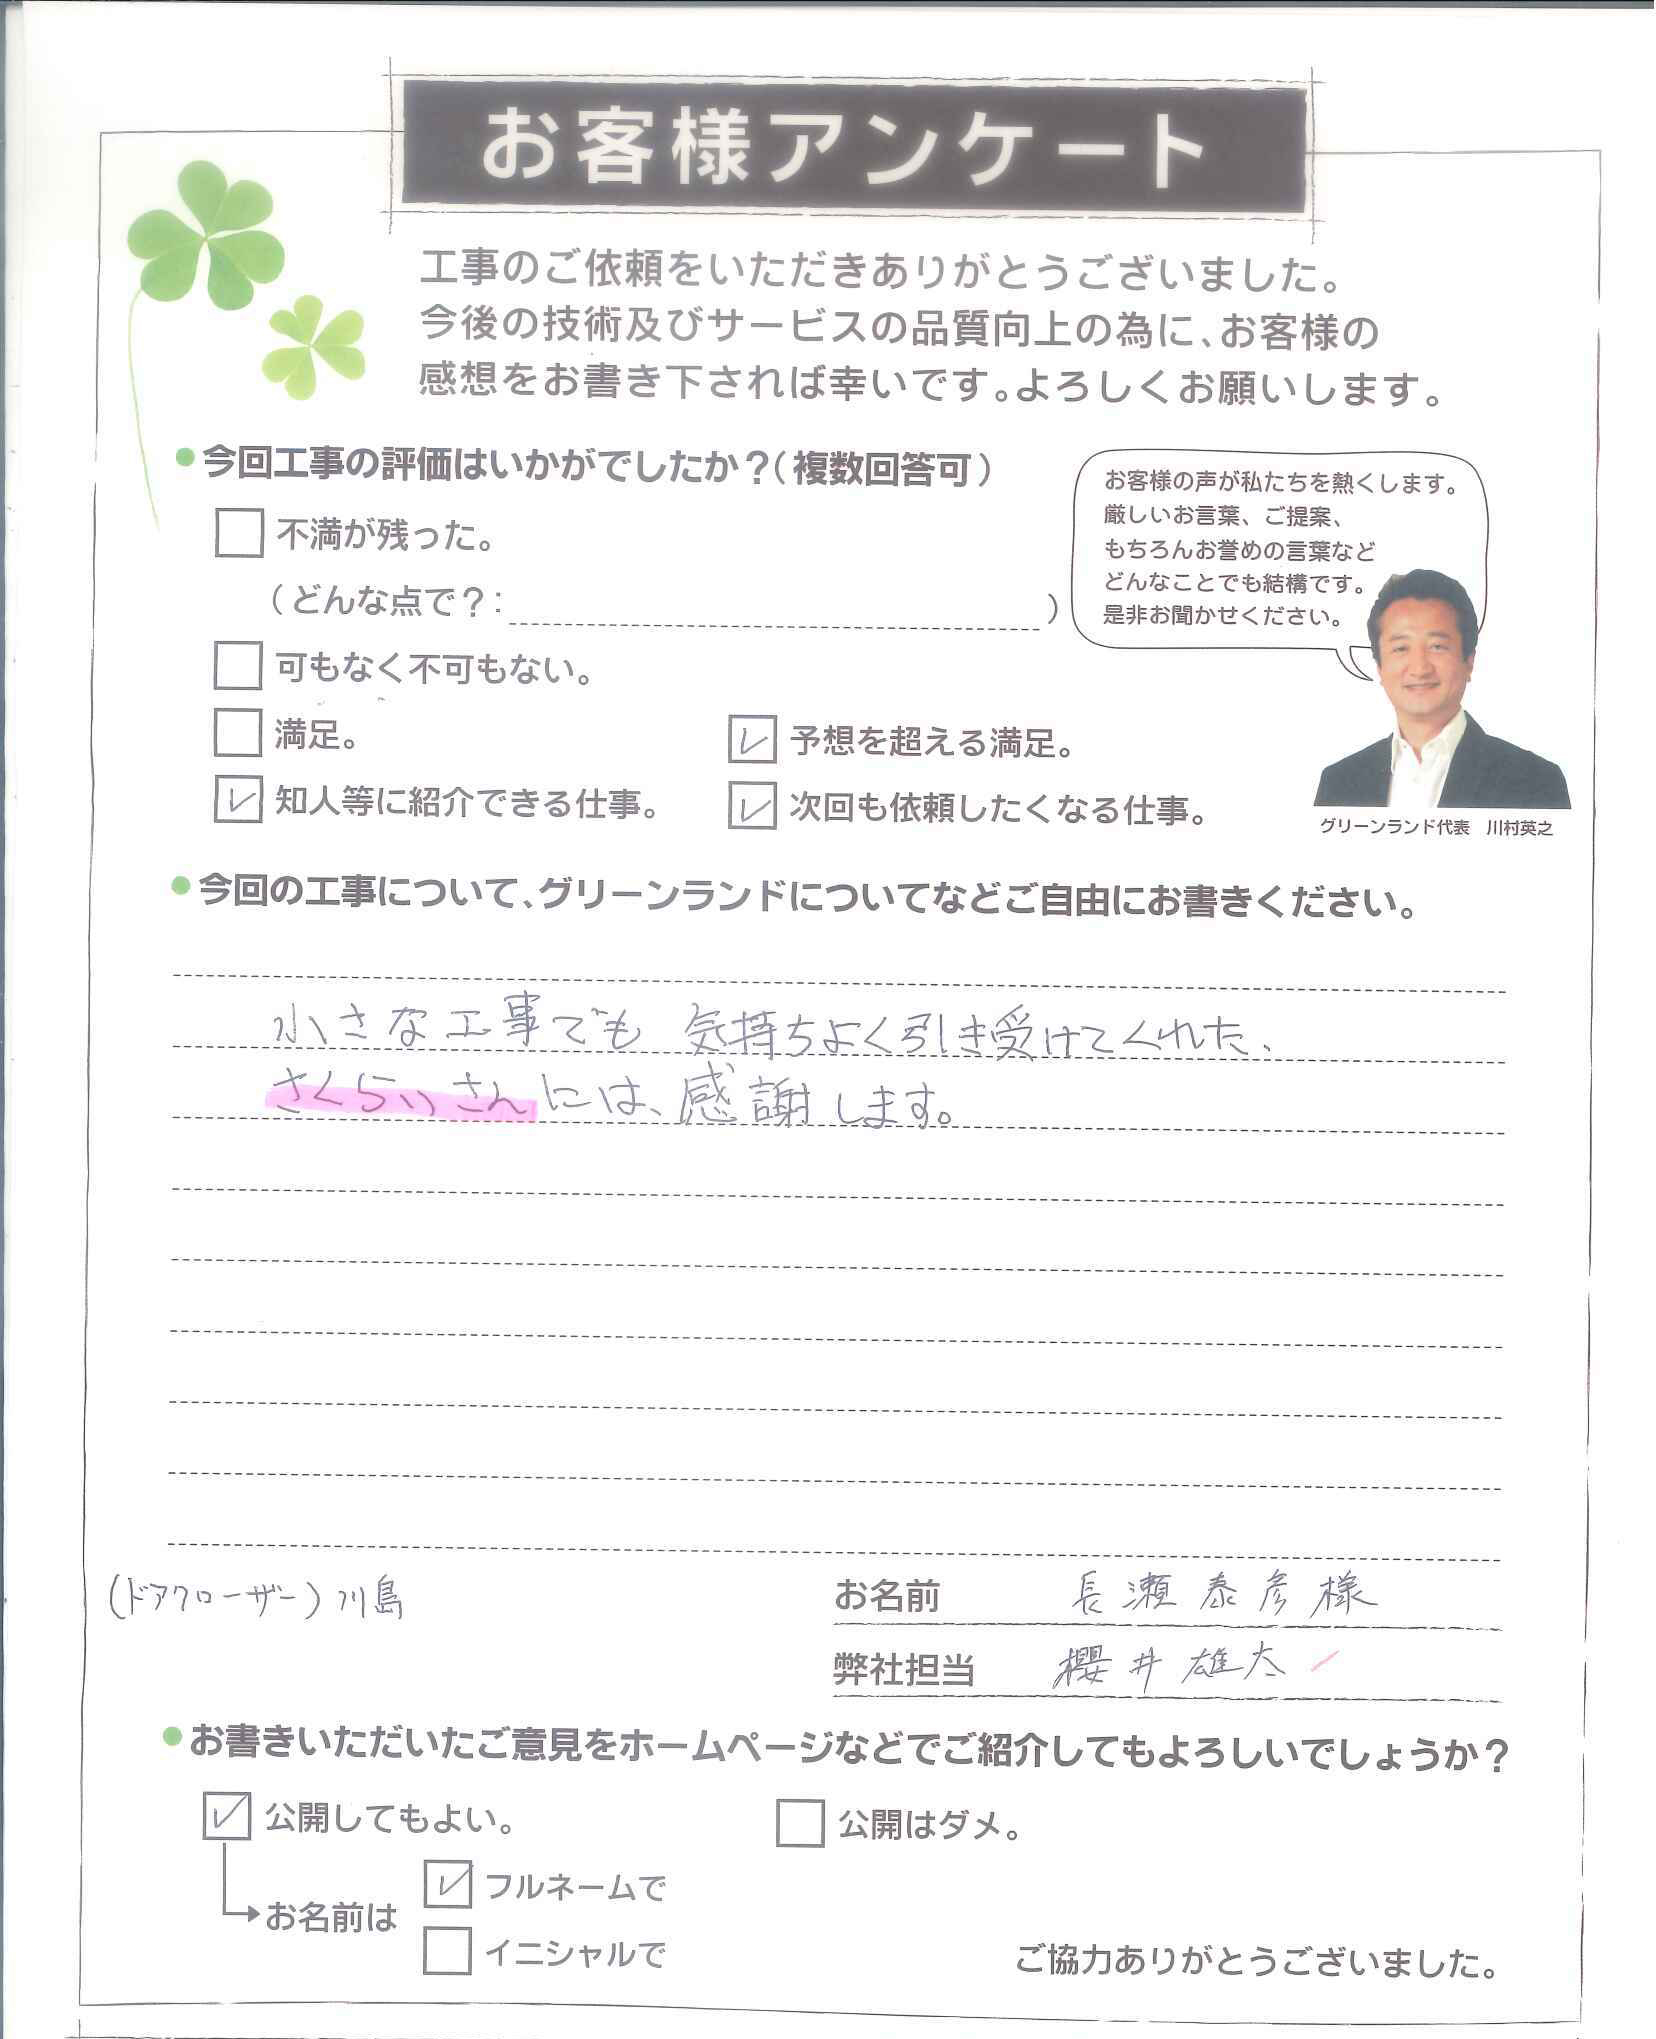 お客様アンケート
工事のご依頼をいただきありがとうございました。
今後の技術及びサービスの品質向上の為に、お客様の
感想をお書き下されば幸いです。よろしくお願いします。
●今回工事の評価はいかがでしたか?(複数回答可)
お客様の声が私たちを熱くします。
厳しいお言葉、ご提案、
もちろんお誉めの言葉など
どんなことでも結構です。
是非お聞かせください。
不満が残った。
(どんな点で?: )
可もなく不可もない。
満足。
予想を超える満足。
知人等に紹介できる仕事。
次回も依頼したくなる仕事。
グリーンランド代表 川村英之
●今回の工事について、グリーンランドについてなどご自由にお書きください。
小さな工事でも 気持ちよく引き受けてくれた、
さくらいさんには、感謝します。
(ドアクローザー) 川島
お名前 長瀬泰彦様
弊社担当 櫻井雄太
●お書きいただいたご意見をホームページなどでご紹介してもよろしいでしょうか?
公開してもよい。
公開はダメ。
お名前は
フルネームで
イニシャルで
ご協力ありがとうございました。